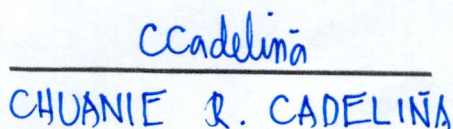 CCadelinā
CHUANIE R. CADELIÑA